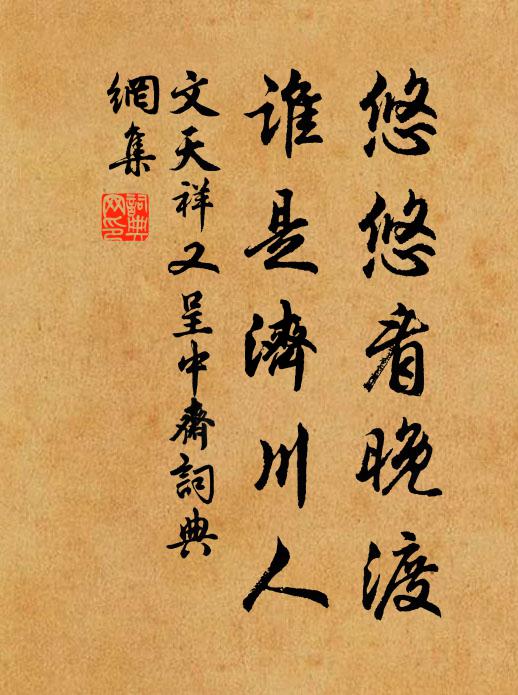 悠悠看晚渡
誰是濟川人
文天祥又呈中齋詞典
網集
詞典
网印